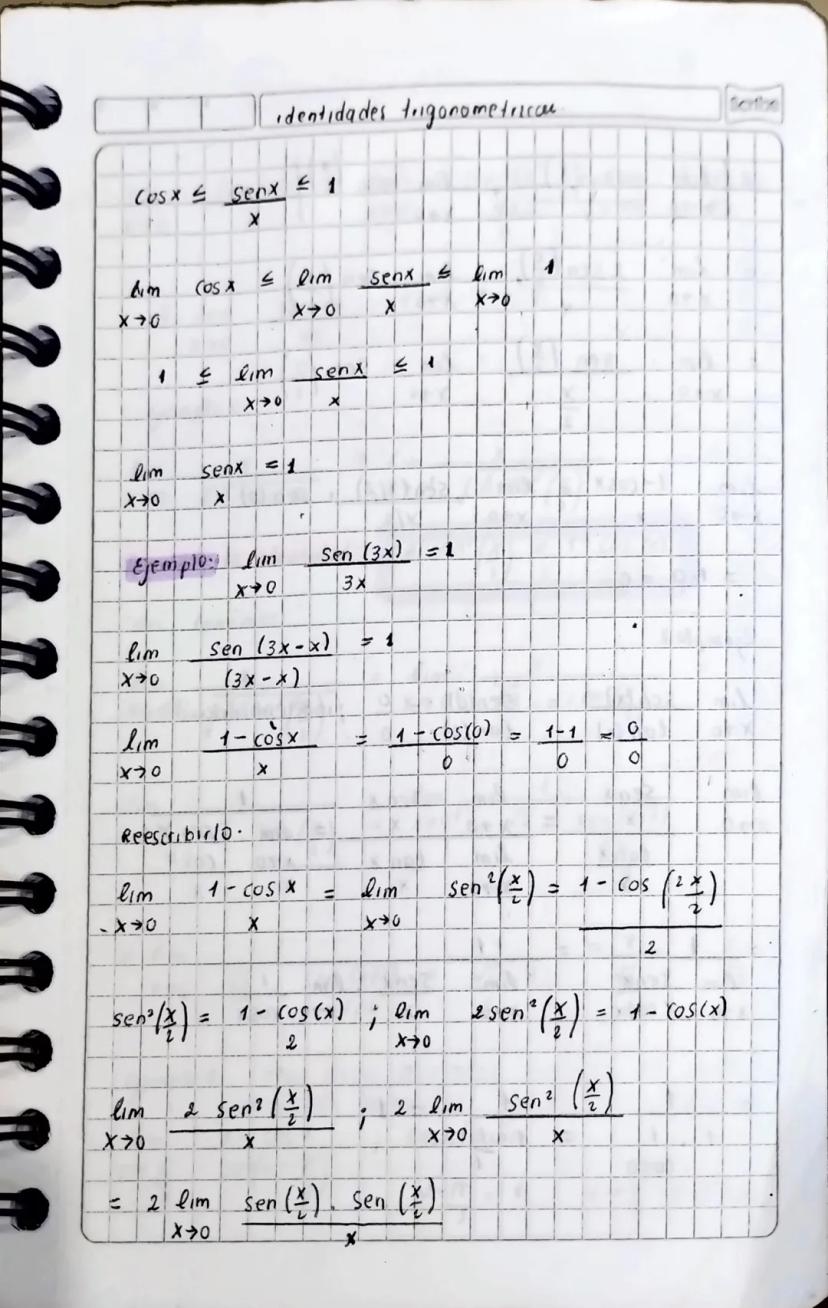 identidades trigonometricas
Scribe
cosx ≤ senx/x ≤ 1
lim x→0 cosx ≤ lim x→0 senx/x ≤ lim x→0 1
1 ≤ lim x→0 senx/x ≤ 1
lim x→0 senx/x = 1
Ejemplo: lim x→0 sen (3x)/3x = 1
lim x→0 sen (3x-x)/(3x-x) = 1
lim x→0 1-cosx/x = 1-cos(0)/0 = 1-1/0 = 0/0
Reescribirlo.
lim x→0 1-cosx/x = lim x→0 sen²(x/2) = 1-cos(2x/2)/2
sen²(x/2) = 1-cos(x)/2 ; lim x→0 2sen²(x/2) = 1-cos(x)
lim x→0 2 sen²(x/2)/x ; 2 lim x→0 sen²(x/2)/x
= 2 lim x→0 sen(x/2) . sen(x/2)/x